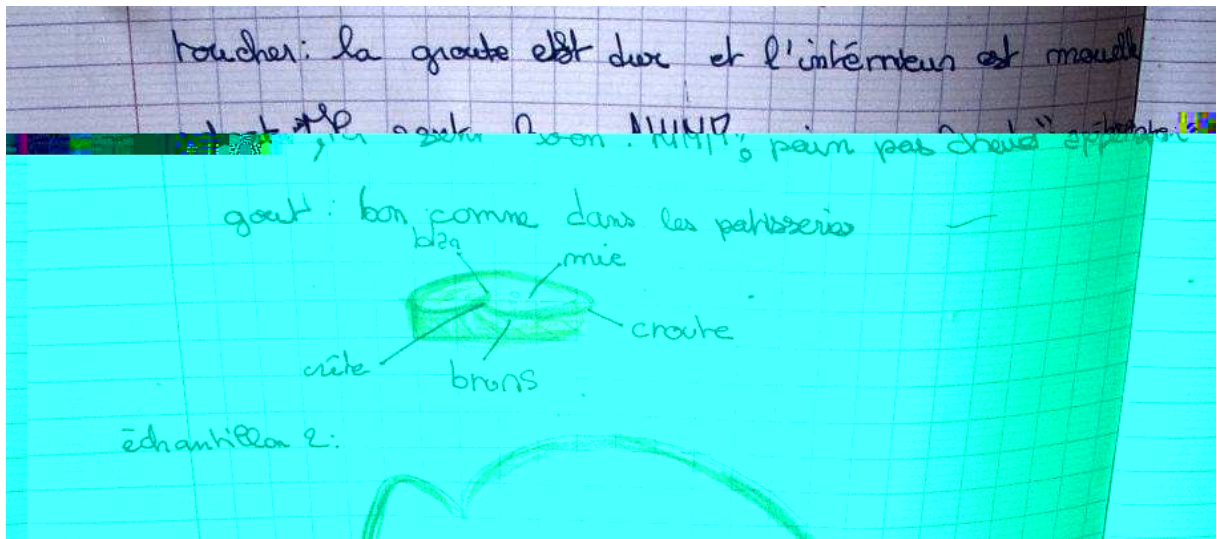 toucher: la groute est dur et l'intérieur est mouelle
bon. MMMP, pain pas chaud"
gout: bon comme dans les patisseries
mie
croute
crête
bruns
échantillon 2: